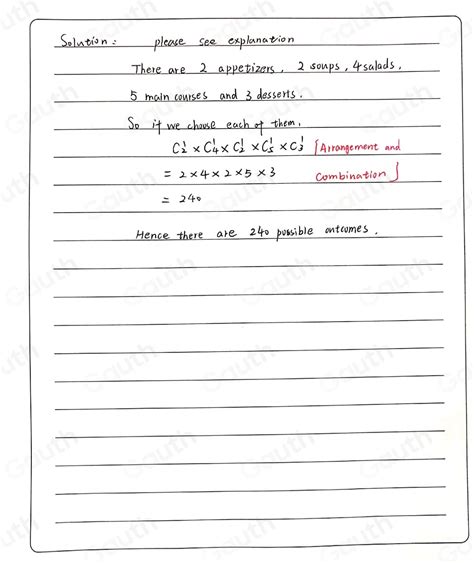 Solution: please see explanation
There are 2 appetizers, 2 soups, 4 salads,
5 main courses and 3 desserts.
So if we choose each of them,
C₂¹ × C₄¹ × C₂¹ × C₅¹ × C₃¹ [Arrangement and
= 2 × 4 × 2 × 5 × 3 Combination]
= 240
Hence there are 240 possible outcomes.
Gauth